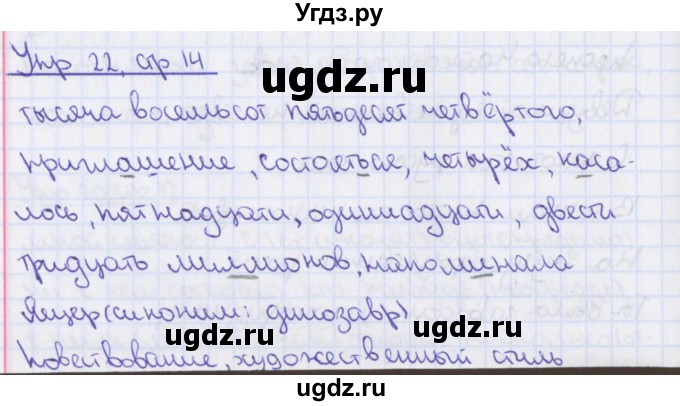 Угдз.ру
Упр 22, стр 14
ugdz.ru
ugdz.ru
тысяча восемьсот пятьдесят четвёртого,
приглашение, состояться, четырёх, каса-
ugdz.ru
ugdz.ru
лось, пятнадцати, одиннадцати, двести
тридцать миллионов, напоминала
ugdz.ru
ugdz.ru
Ящер (синоним: динозавр)
Повествование, художественный стиль
ugdz.ru